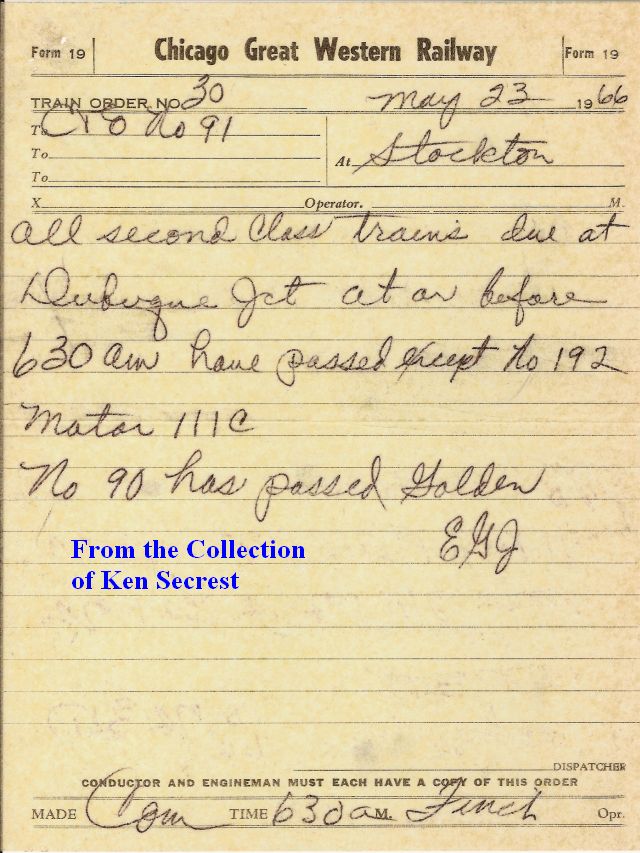 Form 19 Chicago Great Western Railway Form 19
TRAIN ORDER NO. 30 May 23 1966
To C&E No 91
To
To
At Stockton
X Operator. M.
all second Class trains due at
Dubuque Jct at or before
630 am have passed except No 192
Motor 111C
No 90 has passed Golden
EGJ
From the Collection
of Ken Secrest
DISPATCHER
CONDUCTOR AND ENGINEMAN MUST EACH HAVE A COPY OF THIS ORDER
MADE Com TIME 630 a M. Finch Opr.